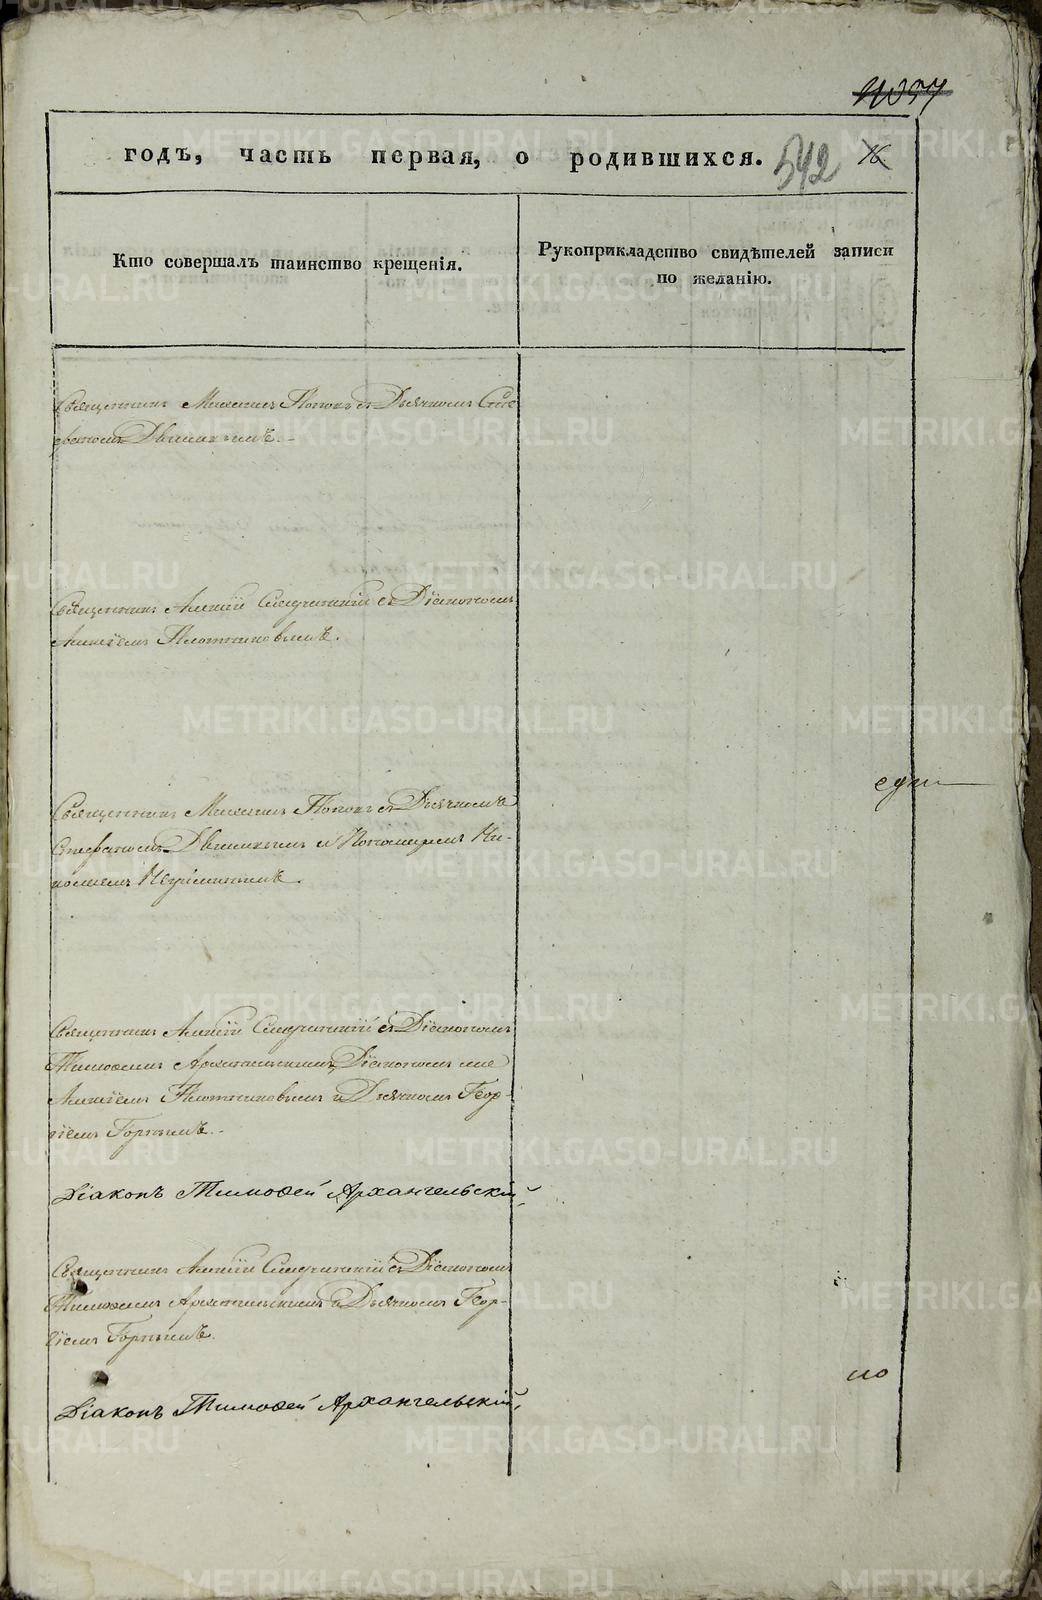 годъ, часть первая, о родившихся. 542 16
Кто совершалъ таинство крещенія.
Рукоприкладство свидѣтелей записи
по желанію.
Священникъ Михаилъ Поповъ съ Дьячкомъ Сте
фаномъ
Священникъ Алексій съ Діакономъ
Алексіемъ Плотниковымъ.
Священникъ Михаилъ Поповъ съ Дьячкомъ
Стефаномъ и Пономаремъ Ни-
колаемъ
Священникъ Алексій съ Діакономъ
Тимофеемъ Архангельскимъ, Діакономъ же
Алексіемъ Плотниковымъ и Дьячкомъ Геор-
гіемъ Горнымъ.
Діаконъ Тимоѳей Архангельскій
Священникъ Алексій съ Діакономъ
Тимофеемъ Архангельскимъ и Дьячкомъ Геор-
гіемъ Горнымъ.
Діаконъ Тимоѳей Архангельскій
по
METRIKI.GASO-URAL.RU